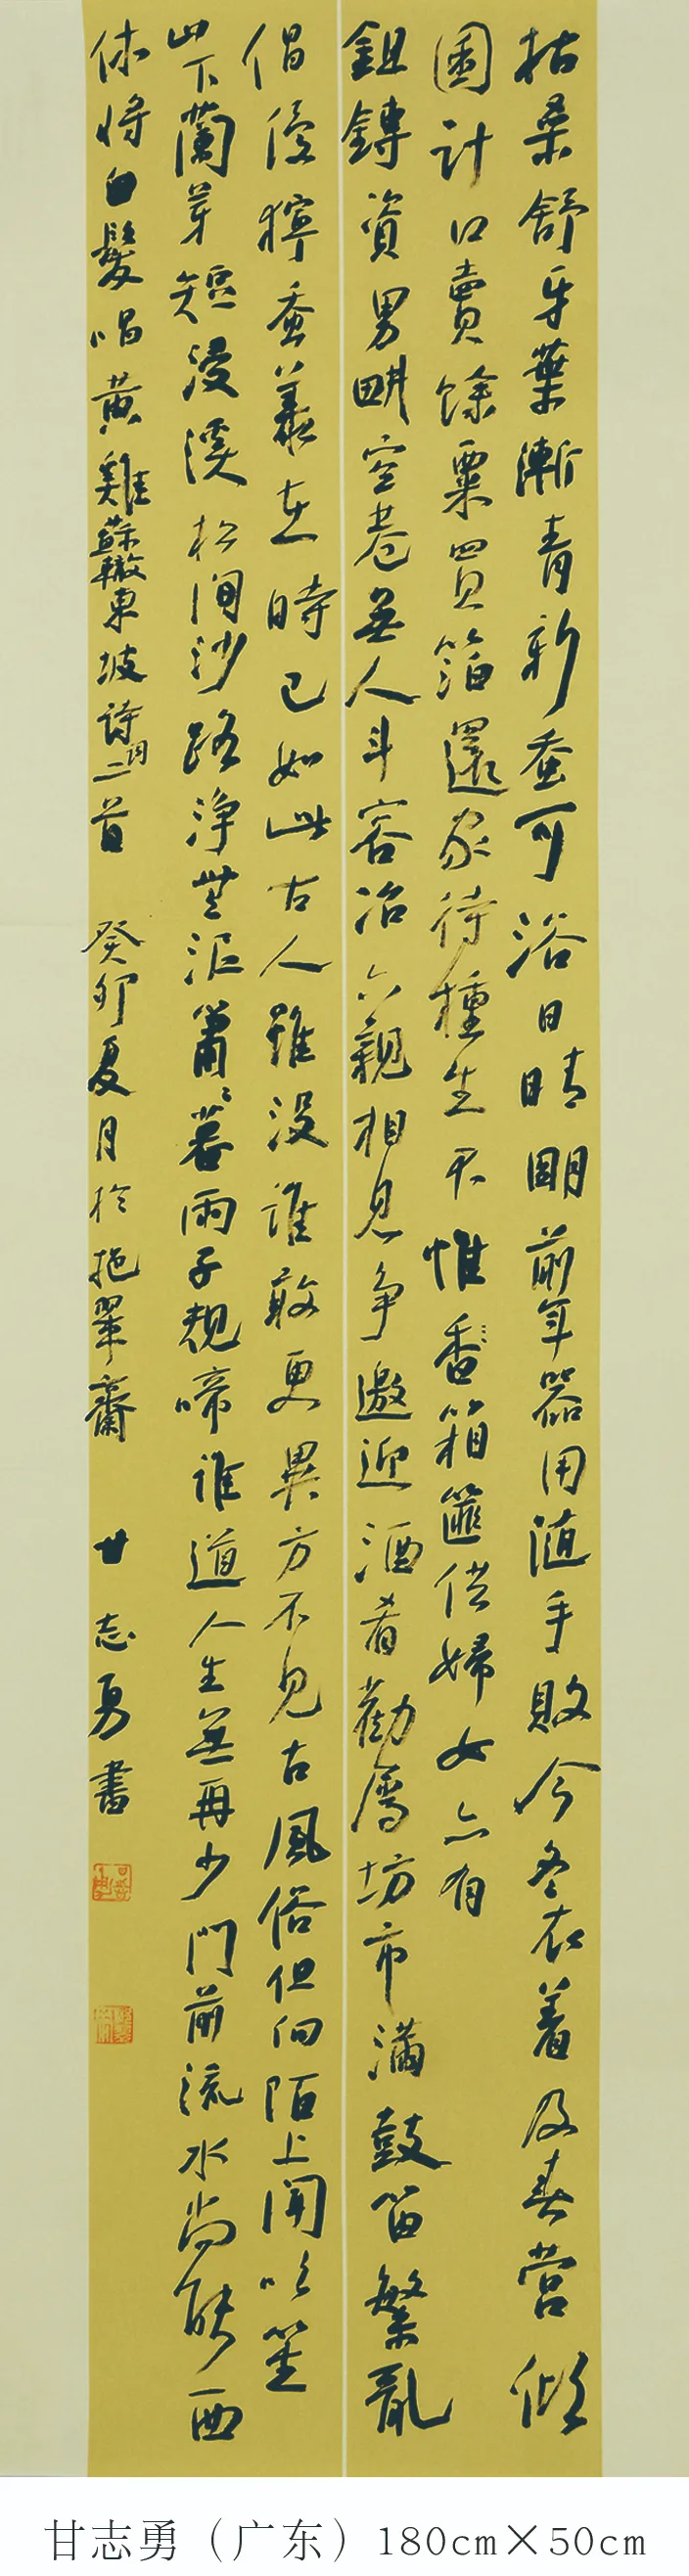 枯桑舒牙葉漸青新蚕可浴日晴朙前年器用随手敗今冬衣着及春營傾
囷計口賣餘粟買箔還家待種生不惟香箱篚供婦女亦有
鉏鎛資男畊空巷無人斗容冶六親相見争邀迎酒肴勸属坊市滿鼓笛繁亂
倡優獰蚕叢在時已如此古人雖没誰敢更異方不見古風俗但向陌上聞吹笙
山下蘭芽短浸溪松间沙路淨無泥蕭〻暮雨子規啼誰道人生無再少門前流水尚能西
休將白髮唱黄雞蘇轍東坡詩词二首 癸卯夏月於抱翠齋 甘志勇書
甘志勇（广东）180cm×50cm